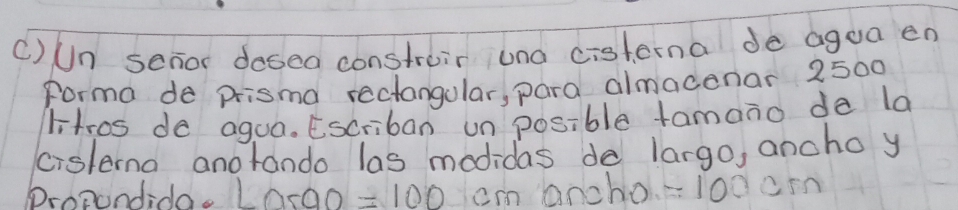 c) Un señor desea construir una cisterna de agua en
forma de prisma rectangular, para almacenar 2500
litros de agua. Escriban un posible tamaño de la
cisterna anotando las medidas de largo, ancho y
Profundida. Largo = 100 cm ancho = 100 cm